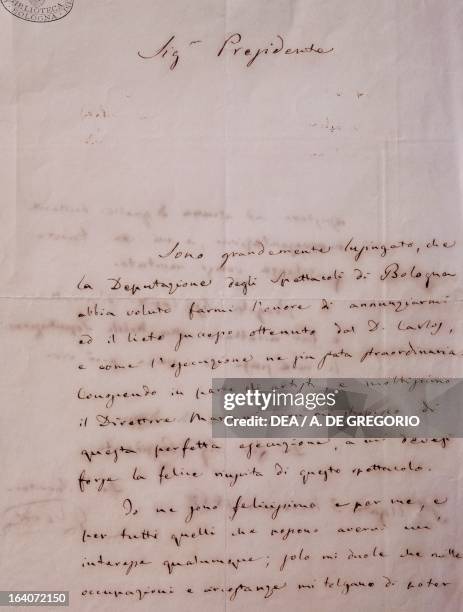 BIBLIOTECA
BOLOGNA
Sigr Presidente
Sono grandemente lusingato, che
la Deputazione degli Spettacoli di Bologna
abbia voluto farmi l'onore di annunziarmi
ed il lieto successo ottenuto dal D. Carlos,
e come l'esecuzione ne sia stata straordinaria.
Conosciendo in parte gli artisti, e moltissimo
il Direttore Mar di
questa perfetta esecuzione, a cui devesi
forse la felice riuscita di questo spettacolo.
Io ne sono felicissimo e per me, e
per tutti quelli che possono averni un'
interesse qualunque; solo mi duole che le
occupazioni e circostanze mi tolgano di poter
gettyimages
Credit: DEA / A. DE GREGORIO
164072150